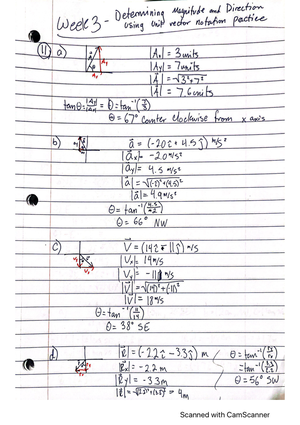 Week 3 - Determining Magnitude and Direction
using unit vector notation practice
11 a)
|Ax| = 3 units
|Ay| = 7 units
|A| = √3²+7²
|A| = 7.6 units
θ = 67° counter clockwise from x axis
b) a⃗ = (-2.0î + 4.5ĵ) m/s²
|ax| = -2.0 m/s²
|ay| = 4.5 m/s²
|a⃗| = √(-2)²+(4.5)²
|a| = 4.9 m/s²
θ = tan⁻¹(4.5/-2.0)
θ = 66° NW
c) V⃗ = (14î - 11ĵ) m/s
|Vx| = 14 m/s
|Vy| = -11 m/s
|V⃗| = √(14)²+(-11)²
|V| = 18 m/s
θ = tan⁻¹(11/14)
θ = 38° SE
d) |R⃗| = (-2.2î - 3.3ĵ) m
|Rx| = -2.2 m
|Ry| = -3.3 m
= 4m
θ = 56° SW
Scanned with CamScanner